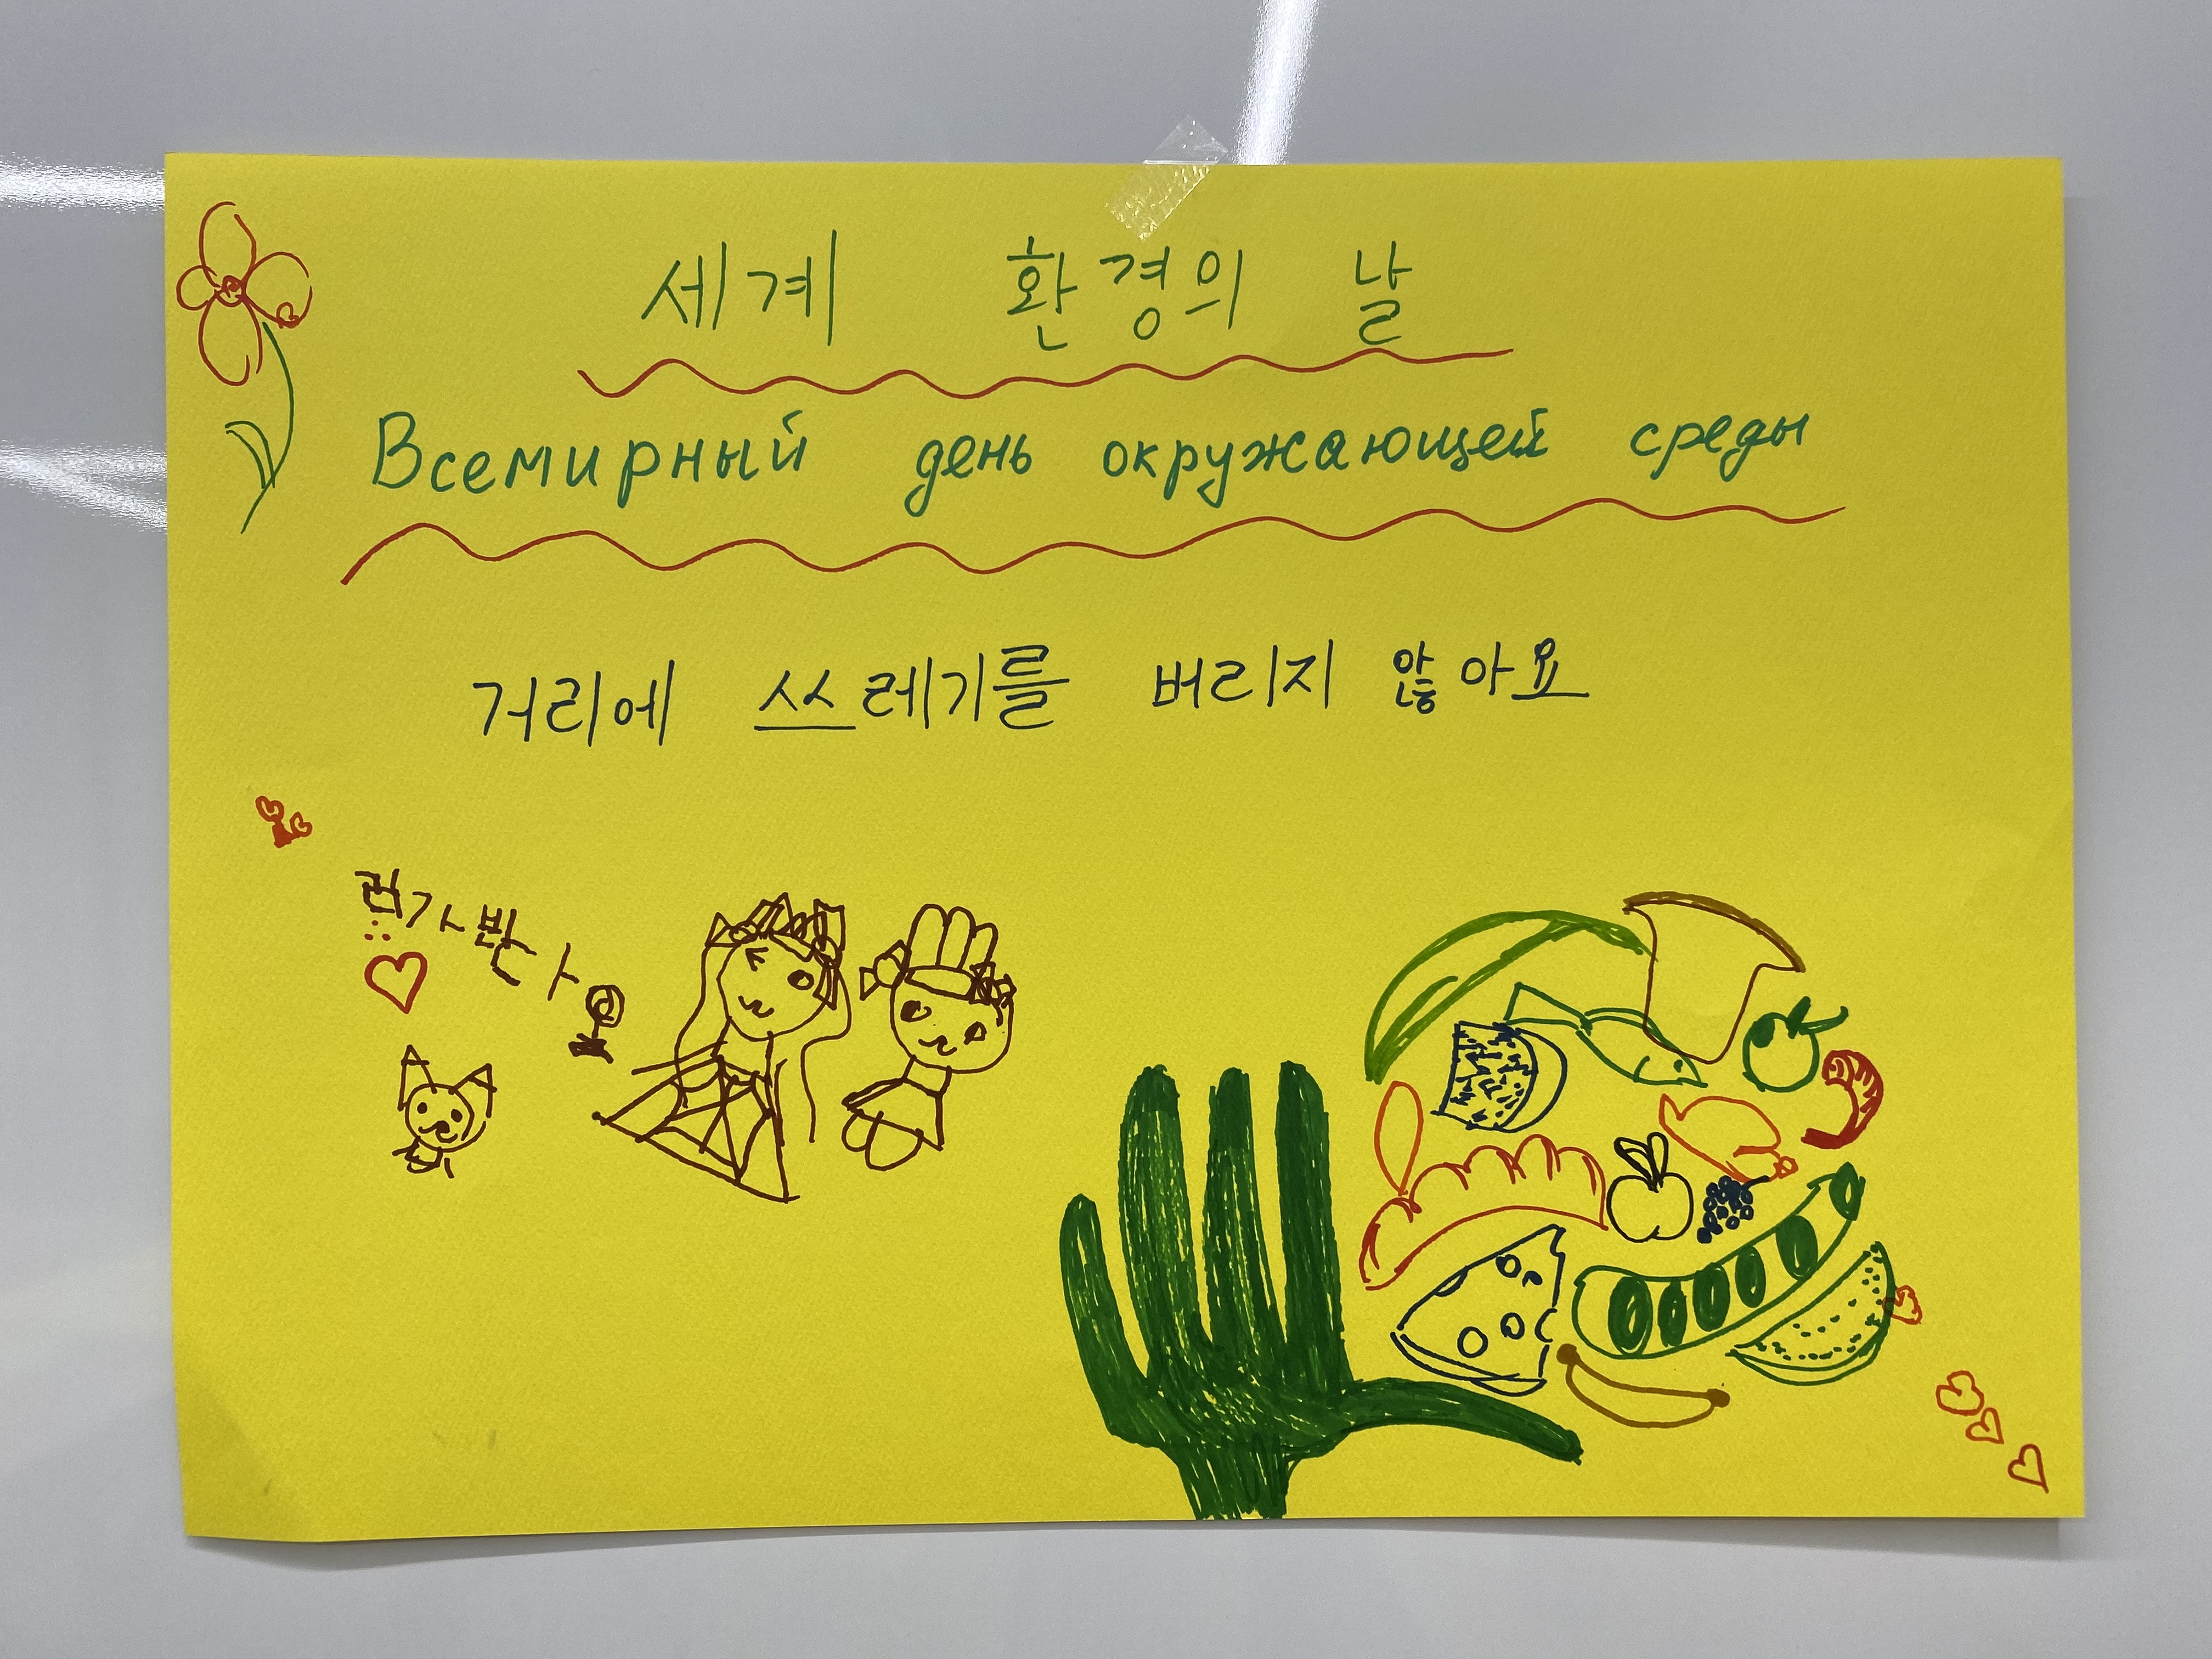 세계 환경의 날
Всемирный день окружающей среды
거리에 쓰레기를 버리지 않아요